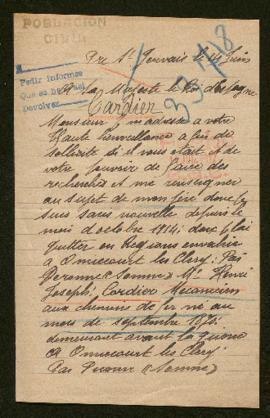 POBLACION
CIVIL
Pré St Gervais le 14 Juin
Pedir informe
Devolver
A Sa Majesté le Roi d'Espagne
Cardier
Monsieur, j'adresse a votre
Haute bienveillance a fin de
sollicité si il vous était et de
votre pouvoir de faire des
recherches et me renseigner
au sujet de mon père dont je
suis sans nouvelle depuis le
mois d'octobre 1914, dont j'ai
quitter en
Omiecourt les Clery. Par
Peronne (Somme) Mr Henri
Joseph, Cordier Mecanicien
aux chemins de fer né au
mois de septembre
demeurant avant la guerre
a Omiecourt les Clery
Par Peronne (Somme)